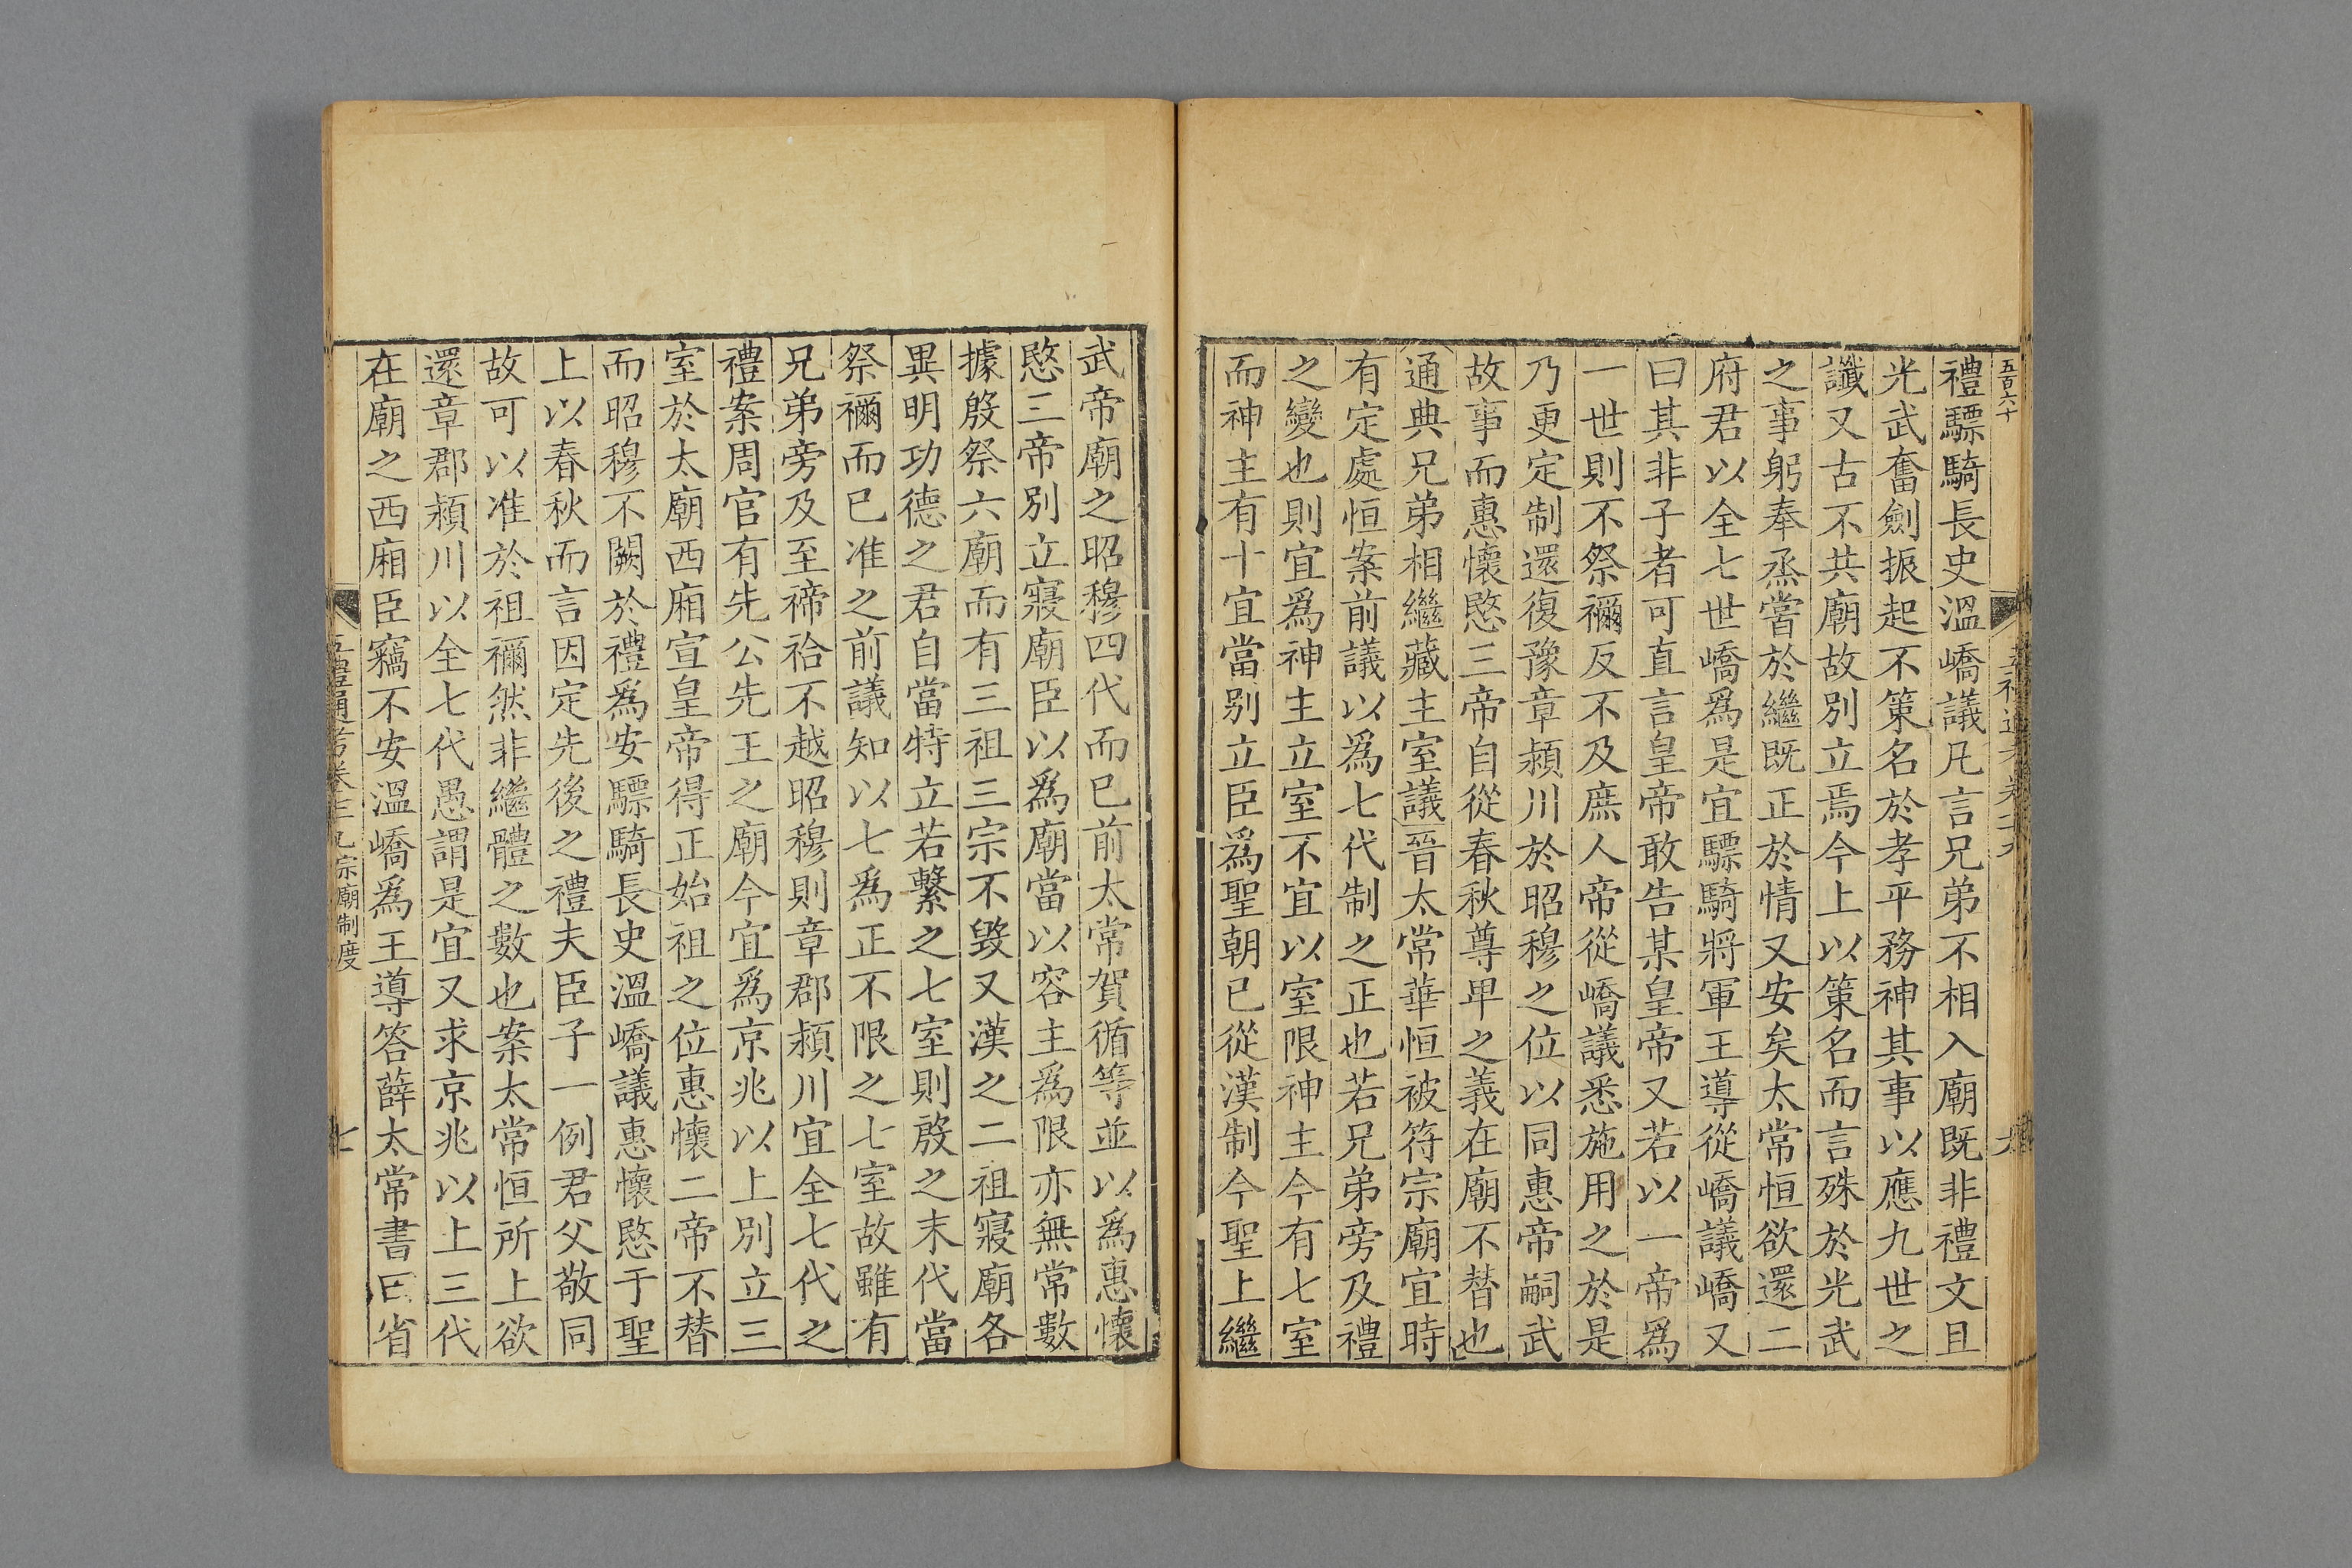 五百六十
禮驃騎長史溫嶠議凡言兄弟不相入廟既非禮文且
光武奮劍振起不策名於孝平務神其事以應九世之
讖又古不共廟故別立焉今上以策名而言殊於光武
之事躬奉烝嘗於繼既正於情又安矣太常恒欲還二
府君以全七世嶠爲是宜驃騎將軍王導從嶠議嶠又
曰其非子者可直言皇帝敢告某皇帝又若以一帝爲
一世則不祭禰反不及庶人帝從嶠議悉施用之於是
乃更定制還復豫章潁川於昭穆之位以同惠帝嗣武
故事而惠懷愍三帝自從春秋尊卑之義在廟不替也
通典兄弟相繼藏主室議晉太常華恒被符宗廟宜時
有定處恒案前議以爲七代制之正也若兄弟旁及禮
之變也則宜爲神主立室不宜以室限神主今有七室
而神主有十宜當別立臣爲聖朝已從漢制今聖上繼
武帝廟之昭穆四代而已前太常賀循等並以爲惠懷
愍三帝別立寢廟臣以爲廟當以容主爲限亦無常數
據殷祭六廟而有三祖三宗不毀又漢之二祖寢廟各
異明功德之君自當特立若繫之七室則殷之末代當
祭禰而已准之前議知以七爲正不限之七室故雖有
兄弟旁及至禘祫不越昭穆則章郡潁川宜全七代之
禮案周官有先公先王之廟今宜爲京兆以上別立三
室於太廟西廂宣皇帝得正始祖之位惠懷二帝不替
而昭穆不闕於禮爲安驃騎長史溫嶠議惠懷愍于聖
上以春秋而言因定先後之禮夫臣子一例君父敬同
故可以准於祖禰然非繼體之數也案太常恒所上欲
還章郡潁川以全七代愚謂是宜又求京兆以上三代
在廟之西廂臣竊不安溫嶠爲王導答薛太常書曰省
五禮通考卷五十九宗廟制度
七